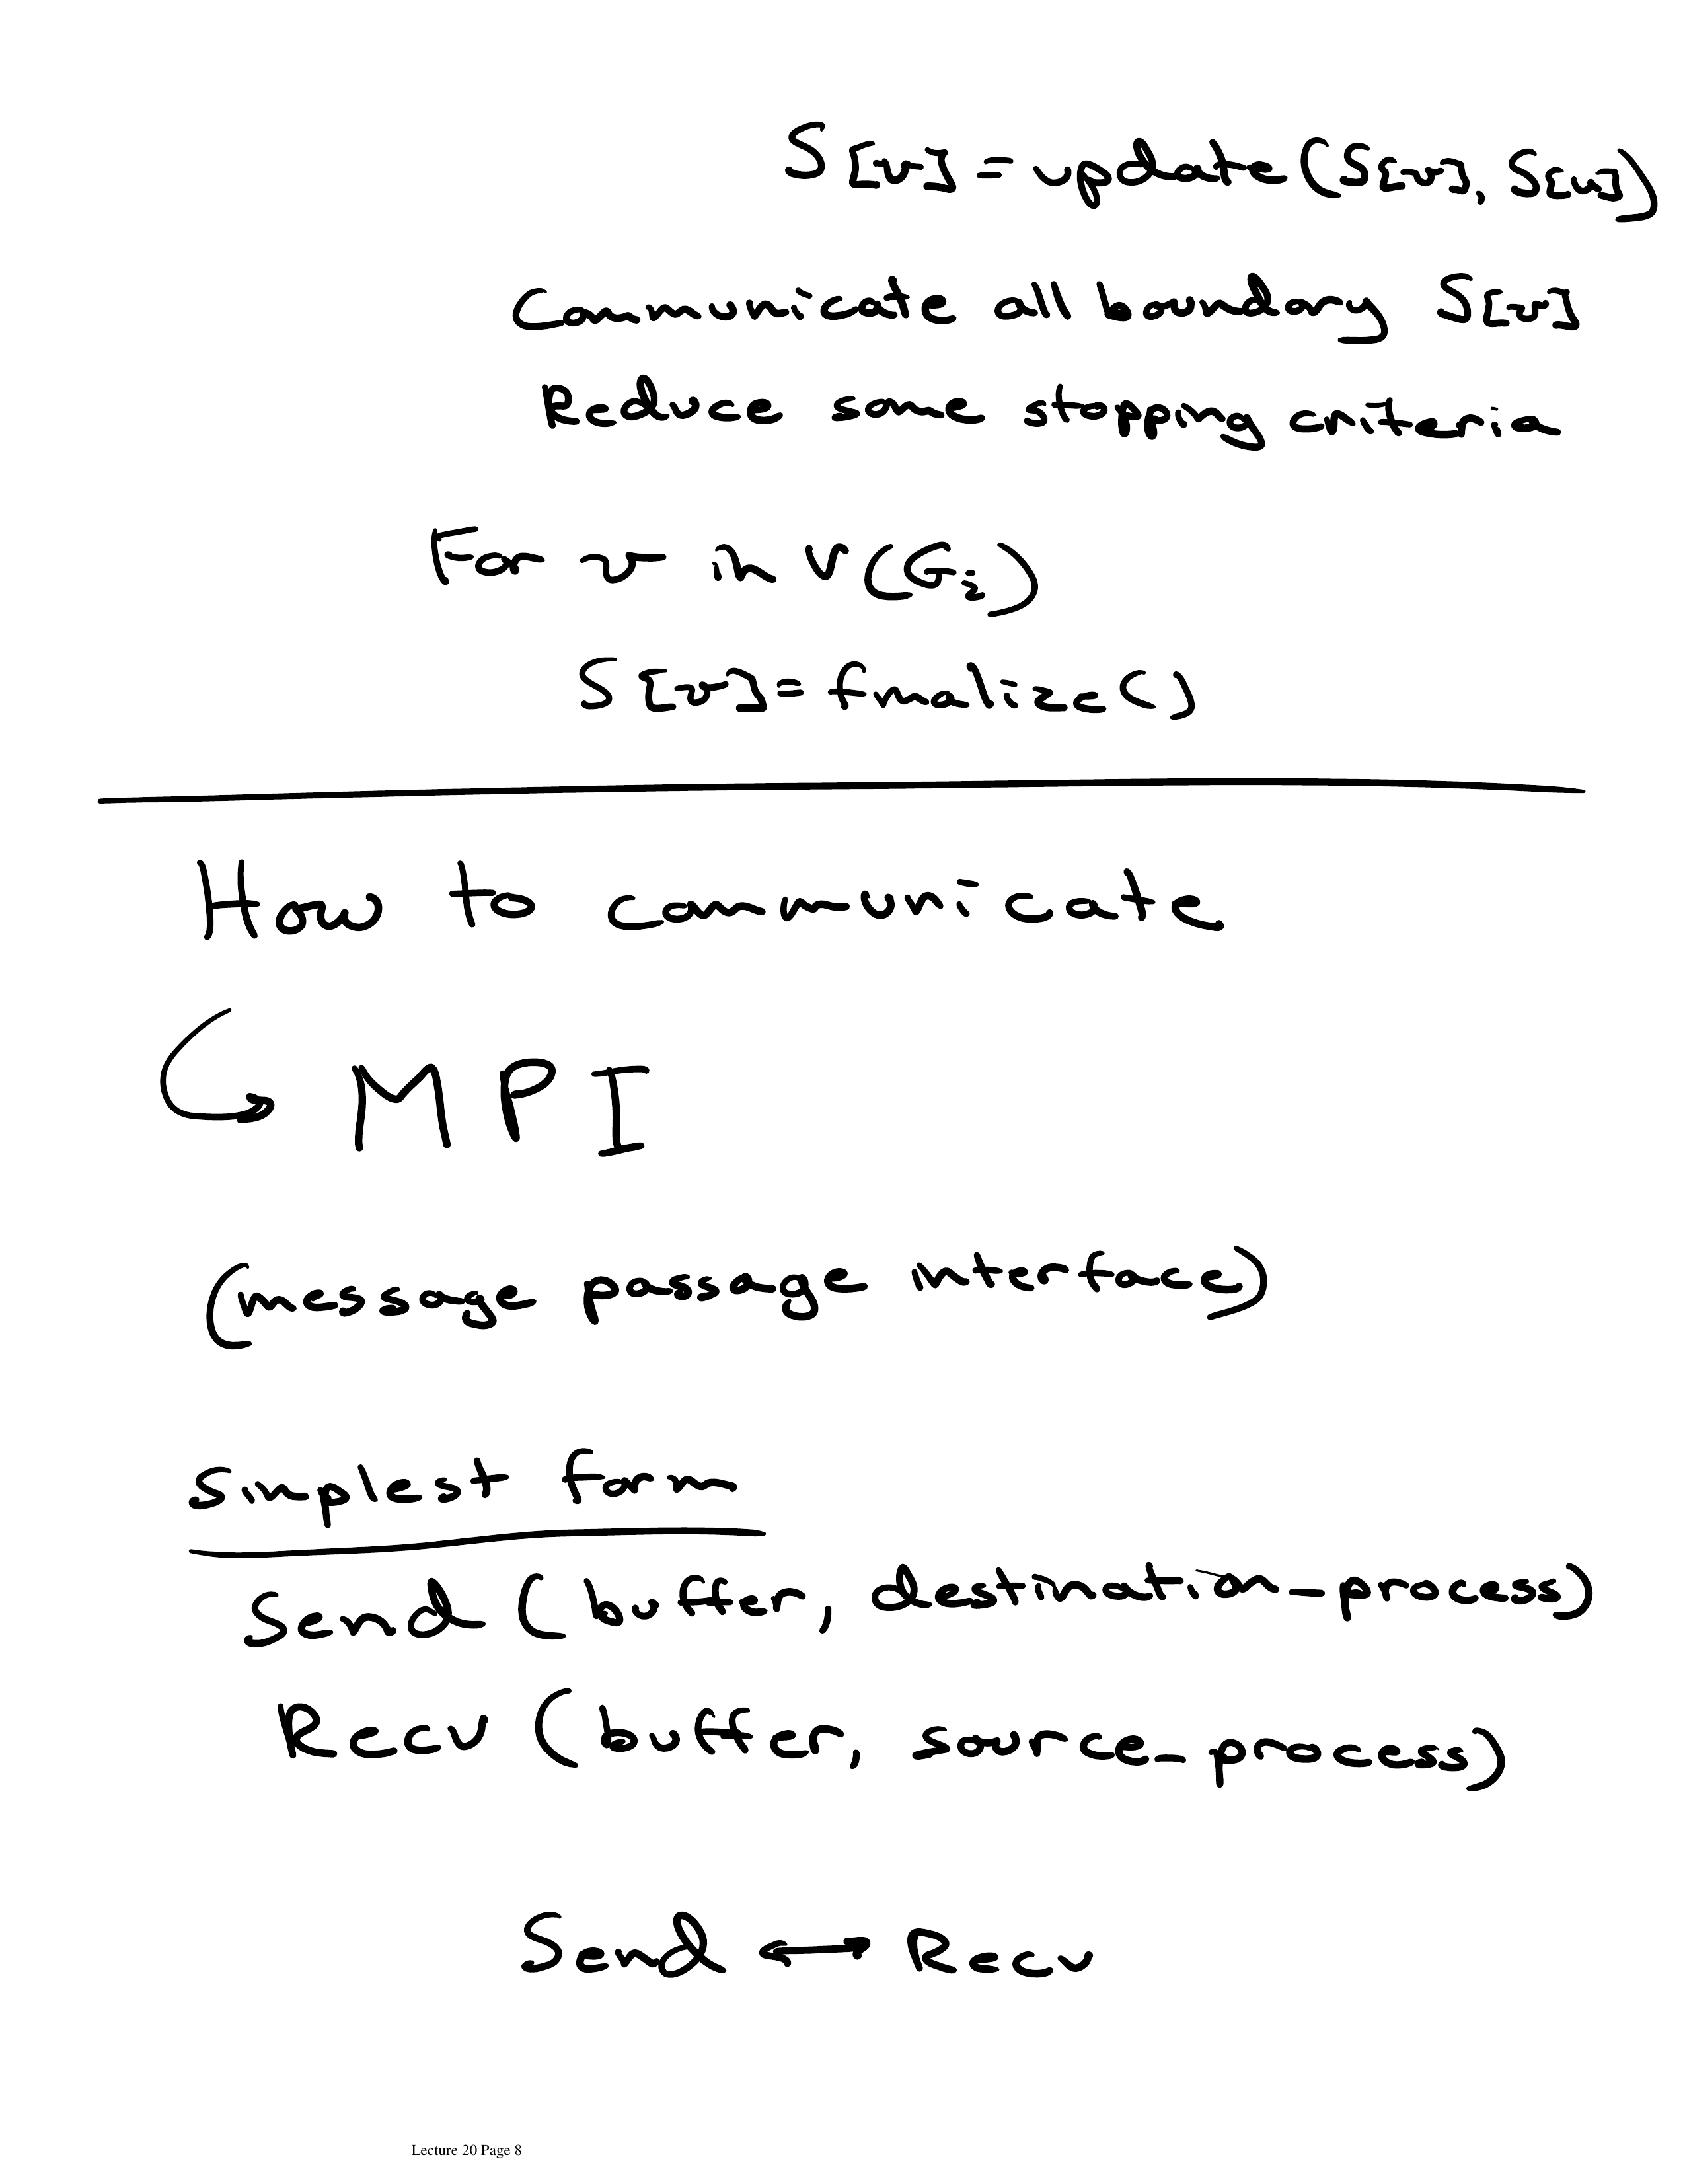 S[v] = update(S[v], S[u])
Communicate all boundary S[v]
Reduce some stopping criteria
For v in V(Gi)
S[v] = finalize()
How to communicate
↳ MPI
(message passage interface)
Simplest form
Send (buffer, destination_process)
Recv (buffer, source_process)
Send ↔ Recv
Lecture 20 Page 8